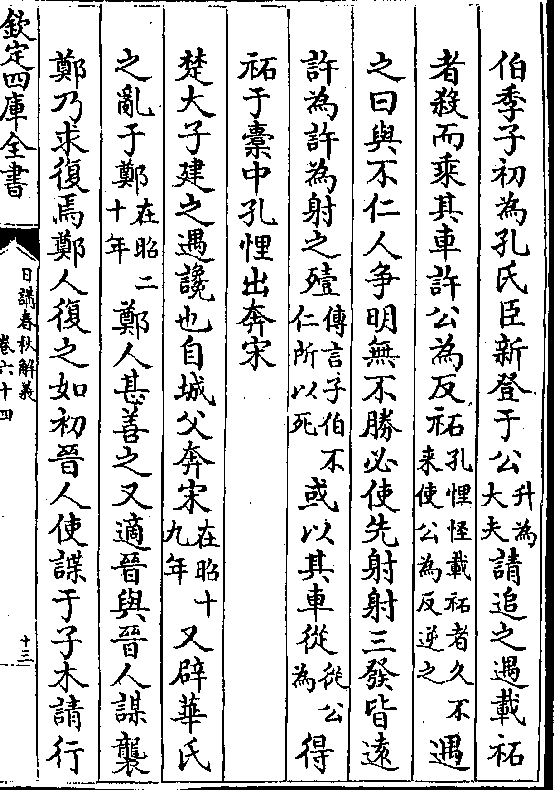 伯季子初為孔氏臣新登于公升為大夫請追之遇載祏
者殺而乘其車許公為反祏孔悝怪載祏者久不來使公為反逆之遇
之曰與不仁人争明無不勝必使先射射三發皆遠
許為許為射之殪傳言子伯不仁所以死或以其車從從公為得
祏于橐中孔悝出奔宋
楚大子建之遇讒也自城父奔宋在昭十九年又辟華氏
之亂于鄭在昭二十年鄭人甚善之又適晉與晉人謀襲
鄭乃求復焉鄭人復之如初晉人使諜于子木請行
欽定四庫全書
日講春秋解義
卷六十四
十三